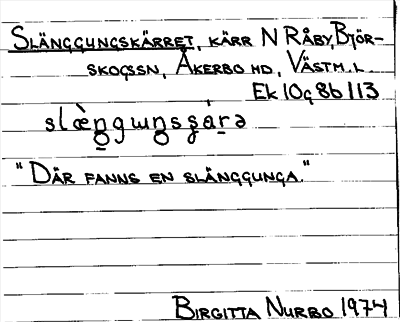 SLÄNGGUNGSKÄRRET, KÄRR N RÅBY, BJÖR-
SKOGSSN, ÅKERBO HD, VÄSTM.L.
Ek 10g 8b 113
"DÄR FANNS EN SLÄNGGUNGA."
BIRGITTA NURBO 1974